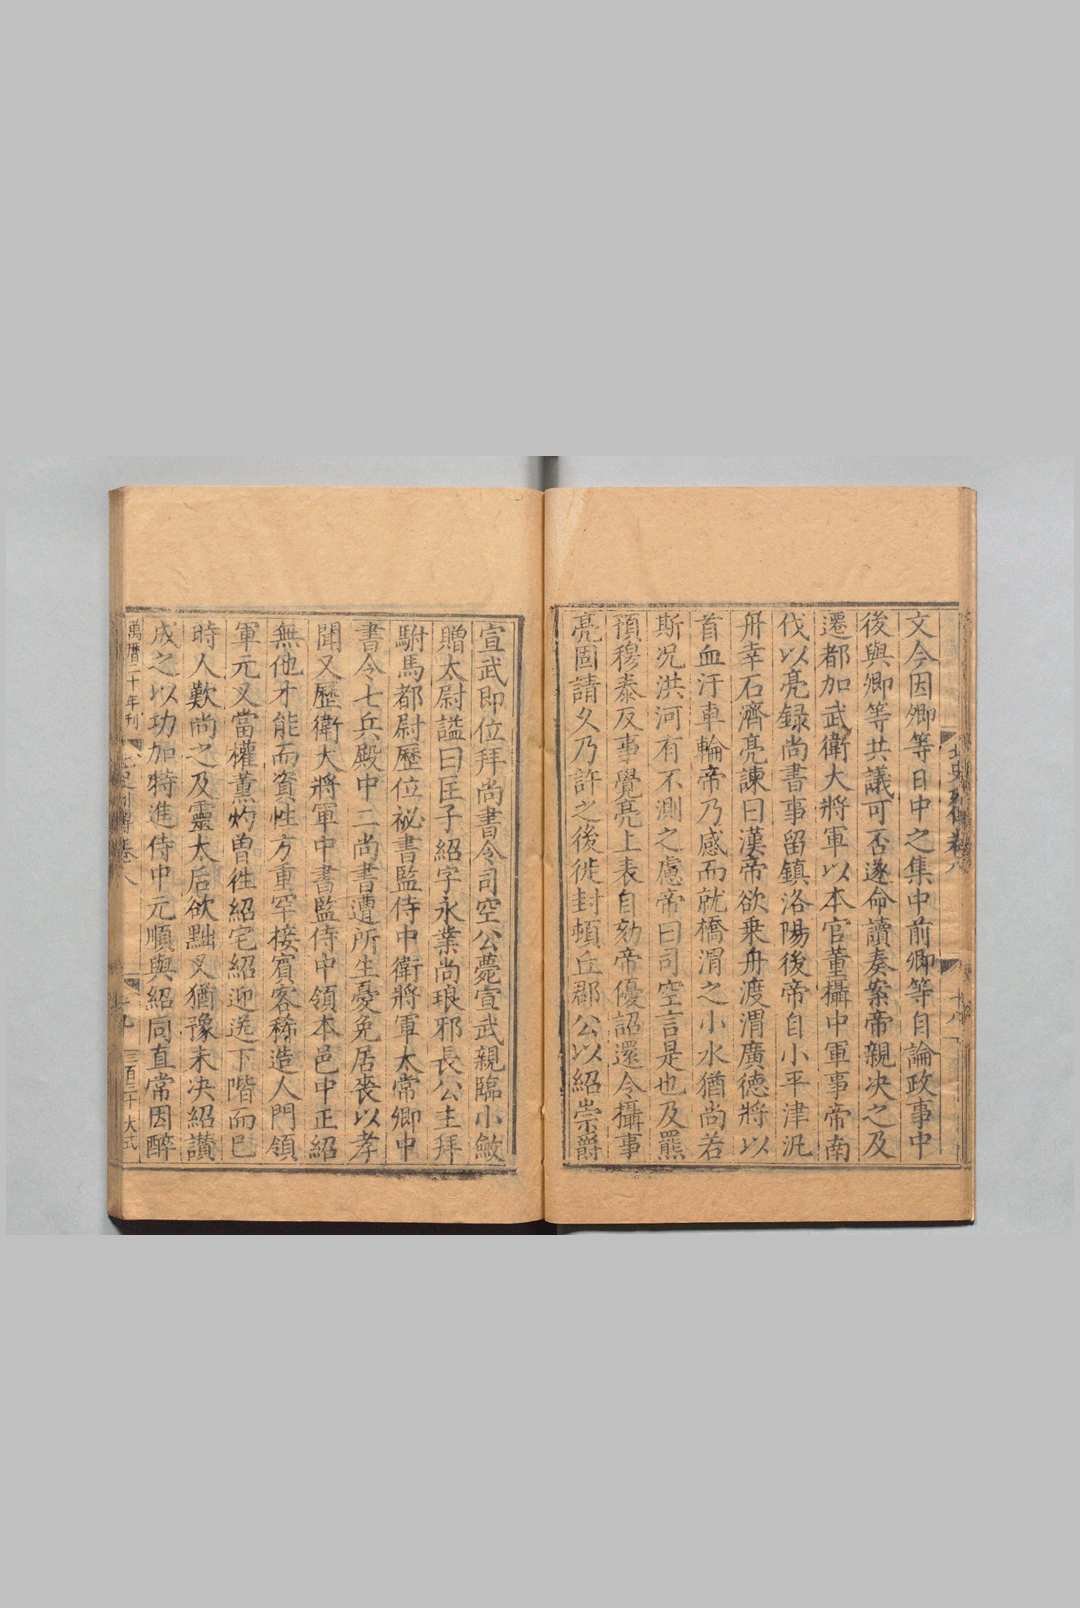 北史列傳卷八
十八
文今因卿等日中之集中前卿等自論政事中
後與卿等共議可否遂命讀奏案帝親決之及
遷都加武衛大將軍以本官董攝中軍事帝南
伐以亮録尚書事留鎮洛陽後帝自小平津汎
舟幸石濟亮諫曰漢帝欲乗舟渡渭廣德將以
首血汙車輪帝乃感而就橋渭之小水猶尚若
斯况洪河有不測之慮帝曰司空言是也及羆
預穆泰反事覺亮上表自劾帝優詔還令攝事
亮固請久乃許之後徙封頓丘郡公以紹崇爵
宣武即位拜尚書令司空公薨宣武親臨小斂
贈太尉謚曰匡子紹字永業尚琅邪長公主拜
駙馬都尉歷位祕書監侍中衛將軍太常卿中
書令七兵殿中二尚書遭所生憂免居喪以孝
聞又歷衛大將軍中書監侍中領本邑中正紹
無他才能而資性方重罕接賓客稀造人門領
軍元叉當權薰灼曽徃紹宅紹迎送下階而已
時人歎尚之及靈太后欲黜叉猶豫未決紹讃
成之以功加特進侍中元順與紹同直常因醉
萬曆二十年刊
北史列傳卷八
十九
三百三十 大式